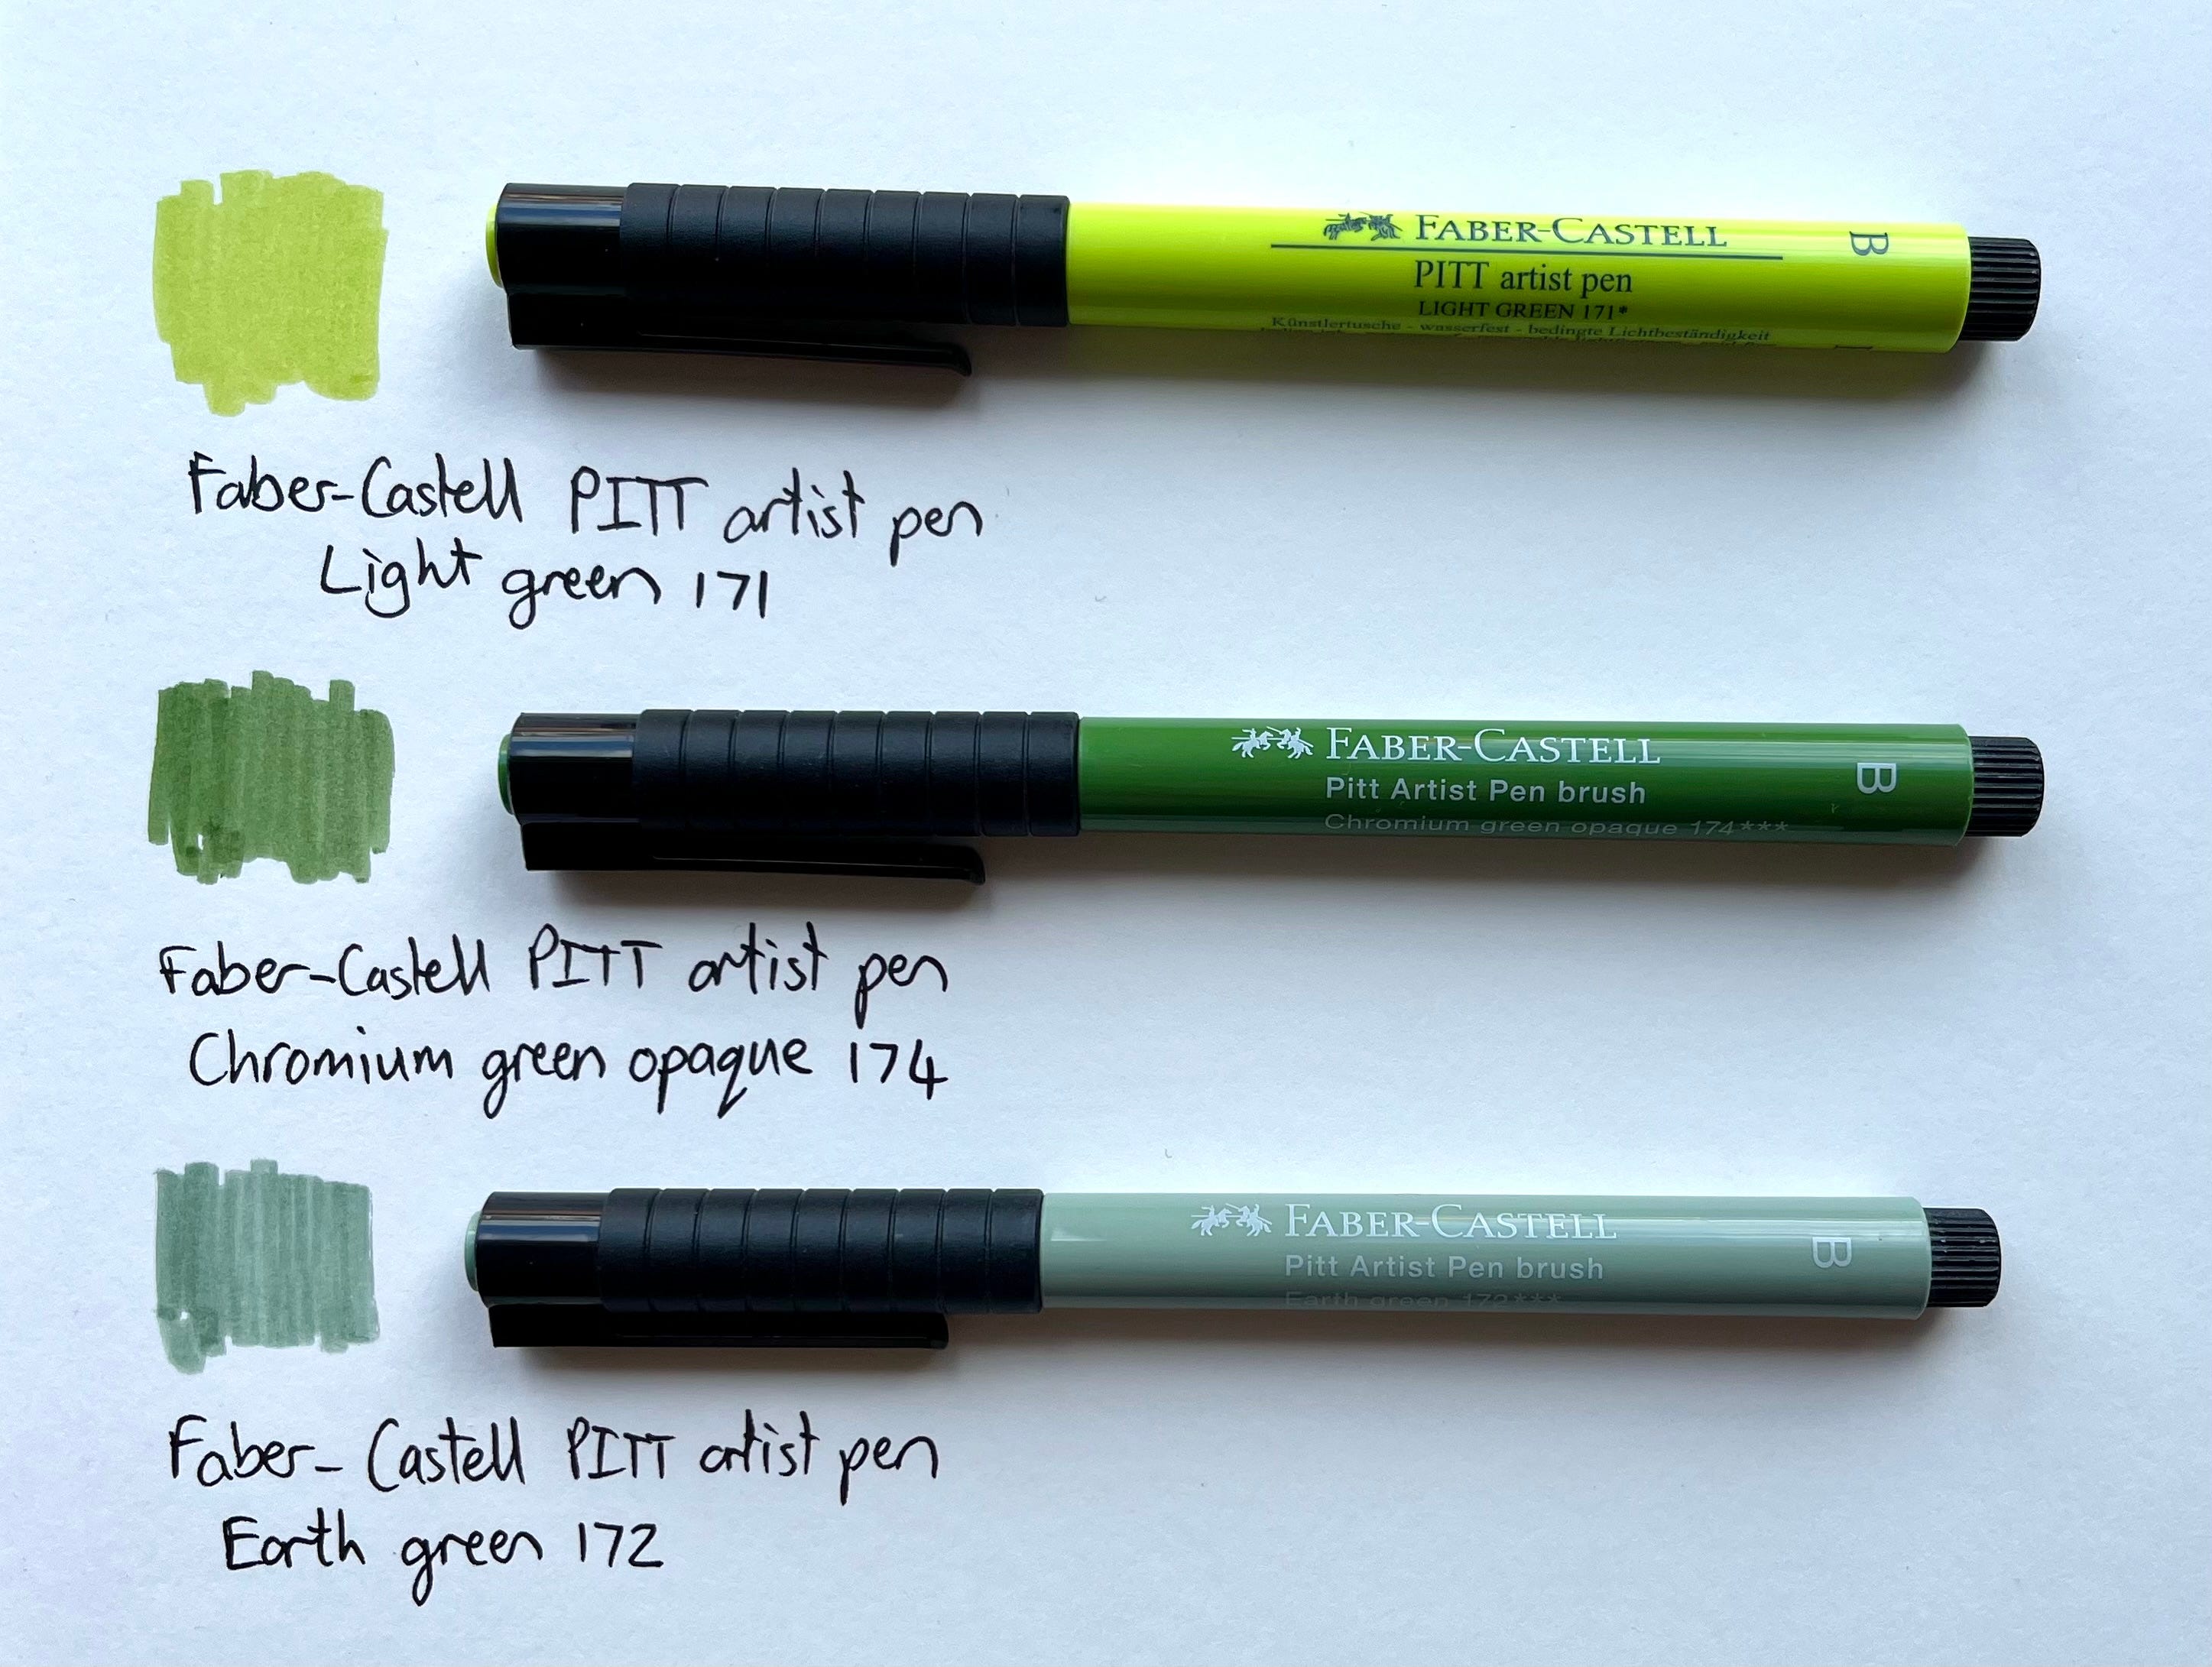 FABER-CASTELL
B
PITT artist pen
LIGHT GREEN 171*
Künstlertusche - wasserfest - bedingte Lichtbeständigkeit
Faber-Castell PITT artist pen
Light green 171
FABER-CASTELL
B
Pitt Artist Pen brush
Chromium green opaque 174***
Faber-Castell PITT artist pen
Chromium green opaque 174
FABER-CASTELL
B
Pitt Artist Pen brush
Earth green 172***
Faber-Castell PITT artist pen
Earth green 172